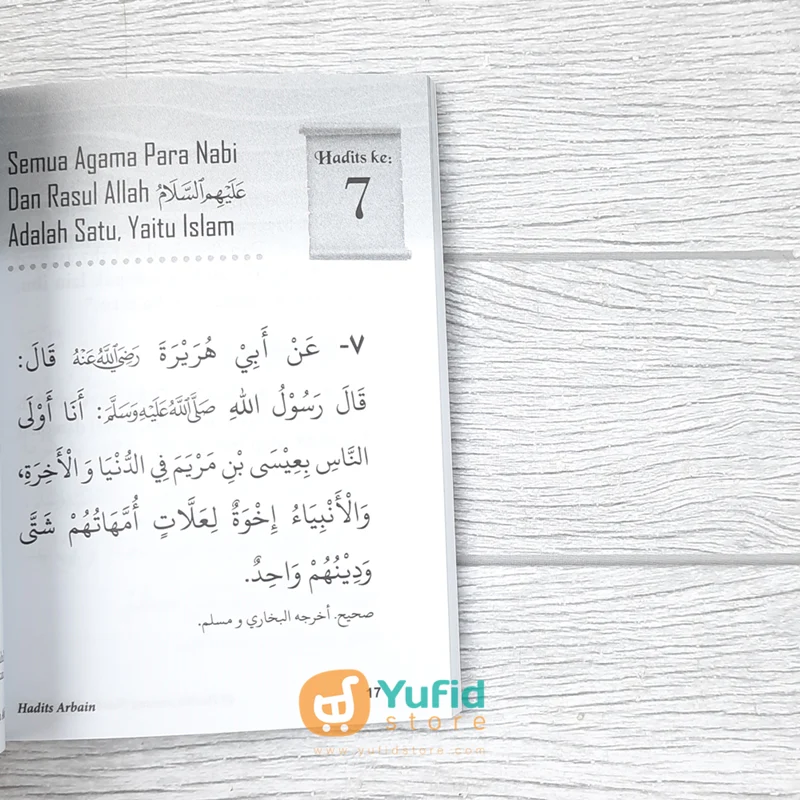 Semua Agama Para Nabi
Dan Rasul Allah عَلَيْهِمُ السَّلَامُ
Adalah Satu, Yaitu Islam
Hadits ke:
7
٧- عَنْ أَبِيْ هُرَيْرَةَ رَضِيَ اللَّهُ عَنْهُ قَالَ:
قَالَ رَسُوْلُ اللهِ صَلَّى اللَّهُ عَلَيْهِ وَسَلَّمَ: أَنَا أَوْلَى
النَّاسِ بِعِيْسَى بْنِ مَرْيَمَ فِي الدُّنْيَا وَ الْأَخِرَةِ،
وَالْأَنْبِيَاءُ إِخْوَةٌ لِعَلَّاتٍ أُمَّهَاتُهُمْ شَتَّى
وَدِيْنُهُمْ وَاحِدٌ.
صحيح. أخرجه البخاري و مسلم.
Hadits Arbain
17
Yufid
store
www.yufidstore.com